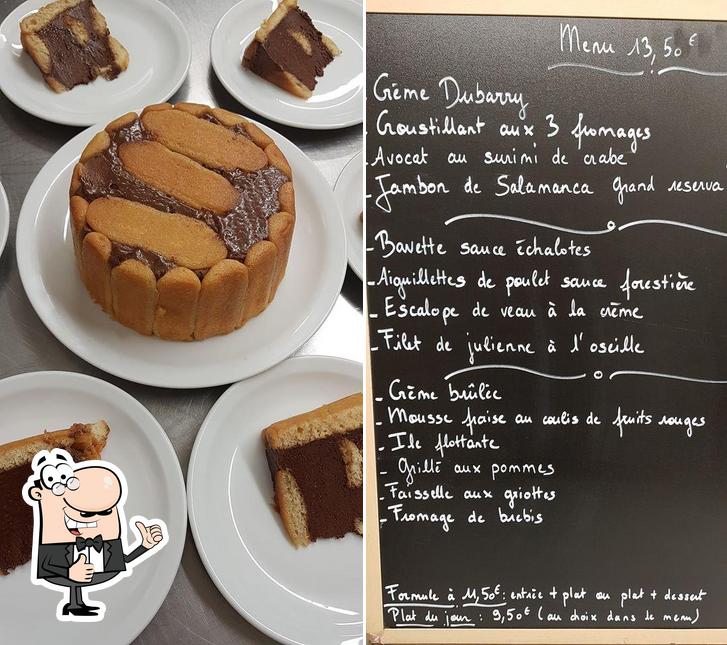 Menu 13,50€
Crème Dubarry
- Croustillant aux 3 fromages
- Avocat au surimi de crabe
- Jambon de Salamanca grand reserva
- Bavette sauce échalotes
- Aiguillettes de poulet sauce forestière
- Escalope de veau à la crème
- Filet de julienne à l'oseille
- Crème brûlée
- Mousse fraise au coulis de fruits rouges
- Ile flottante
- Grillé aux pommes
- Faisselle aux griottes
- Fromage de brebis
Formule à 11,50€: entrée + plat ou plat + dessert
Plat du jour : 9,50€ (au choix dans le menu)